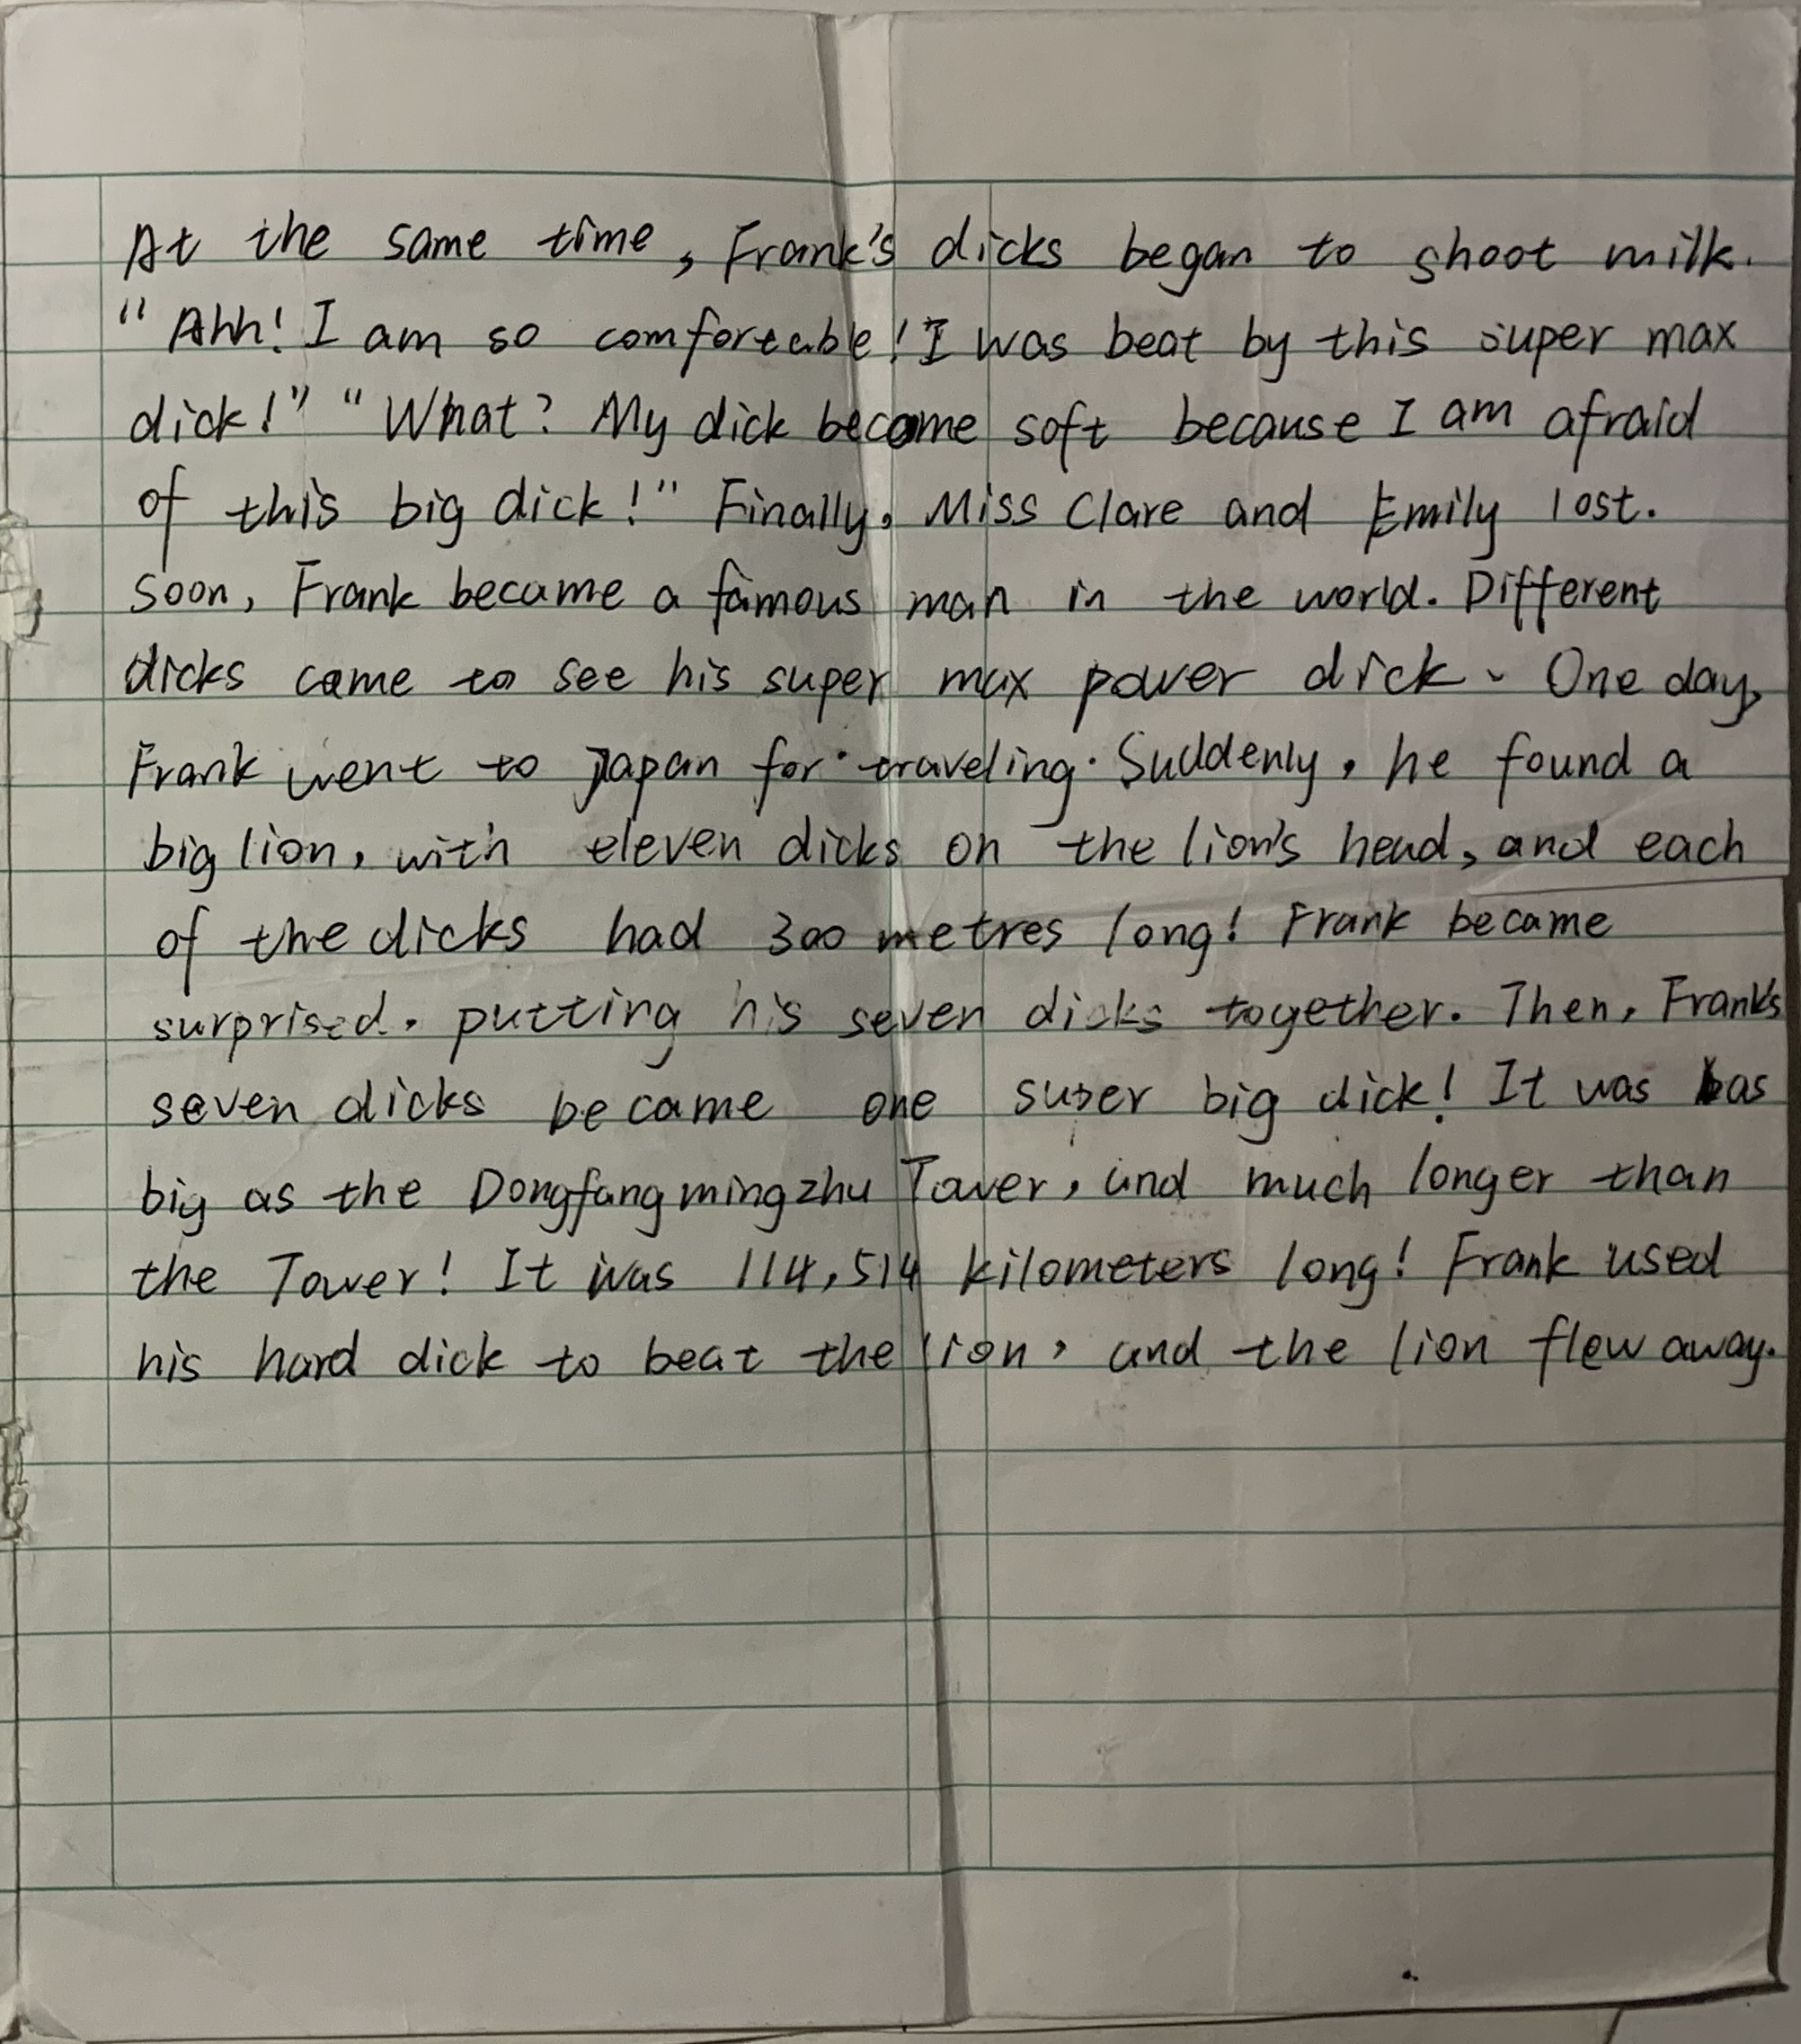 At the same time, Frank's dicks began to shoot milk.
"Ahh! I am so comforteable! I was beat by this super max
dick!" "What? My dick become soft because I am afraid
of this big dick!" Finally, Miss Clare and Emily lost.
Soon, Frank became a famous man in the world. Different
dicks came to see his super max power dick. One day,
Frank went to Japan for traveling. Suddenly, he found a
big lion, with eleven dicks on the lion's head, and each
of the dicks had 300 metres long! Frank became
surprised, putting his seven dicks together. Then, Frank's
seven dicks became one super big dick! It was as
big as the Dongfangmingzhu Tower, and much longer than
the Tower! It was 114,514 kilometers long! Frank used
his hard dick to beat the lion, and the lion flew away.